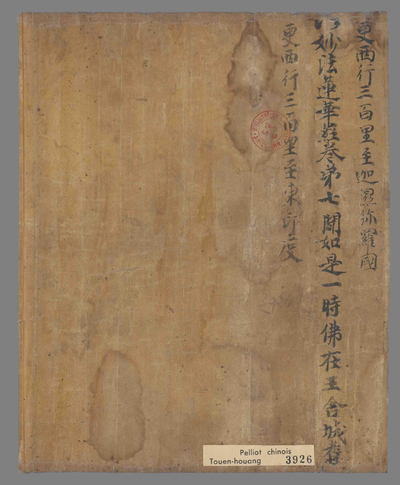 更西行三百里至迦濕弥羅國
妙法蓮華經卷第七聞如是一時佛在王舍城
更西行三百里至東印度
Pelliot chinois
Touen-houang 3926